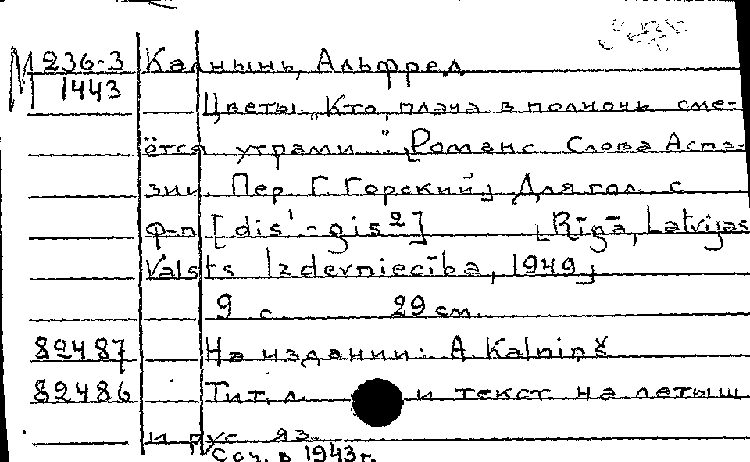 М 236-3 Калнынь, Альфред
1443
Цветы. „Кто, плача в полночь, сме-
ётся утрами..." [Романс. Слова Аспа-
зии. Пер. Г. Горский]. Для гол. с
ф-п. [dis¹-gis²] [Rīgā, Latvijas
Valsts Izdevniecība, 1949]
9 с. 29 см.
82487 На издании: A. Kalniņš
82486 Тит. л. и текст на латыш.
и рус. яз.
Соч. в 1943 г.